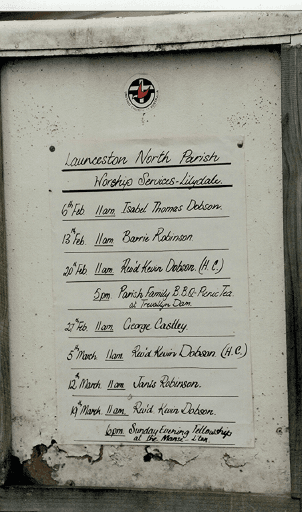 Launceston North Parish
Worship Services-Lilydale.
6th Feb 11am Isabel Thomas Dobson.
13th Feb 11am Barrie Robinson.
20th Feb 11am Rev'd Kevin Dobson. (H.C.)
5pm Parish Family B.B.Q. Picnic Tea
at Trevallyn Dam.
27th Feb. 11am George Castley.
5th March 11am Rev'd Kevin Dobson (H.C.)
12th March 11am Janis Robinson.
19th March 11am Rev'd Kevin Dobson.
6pm Sunday Evening Fellowship
at the Manse - L'ton